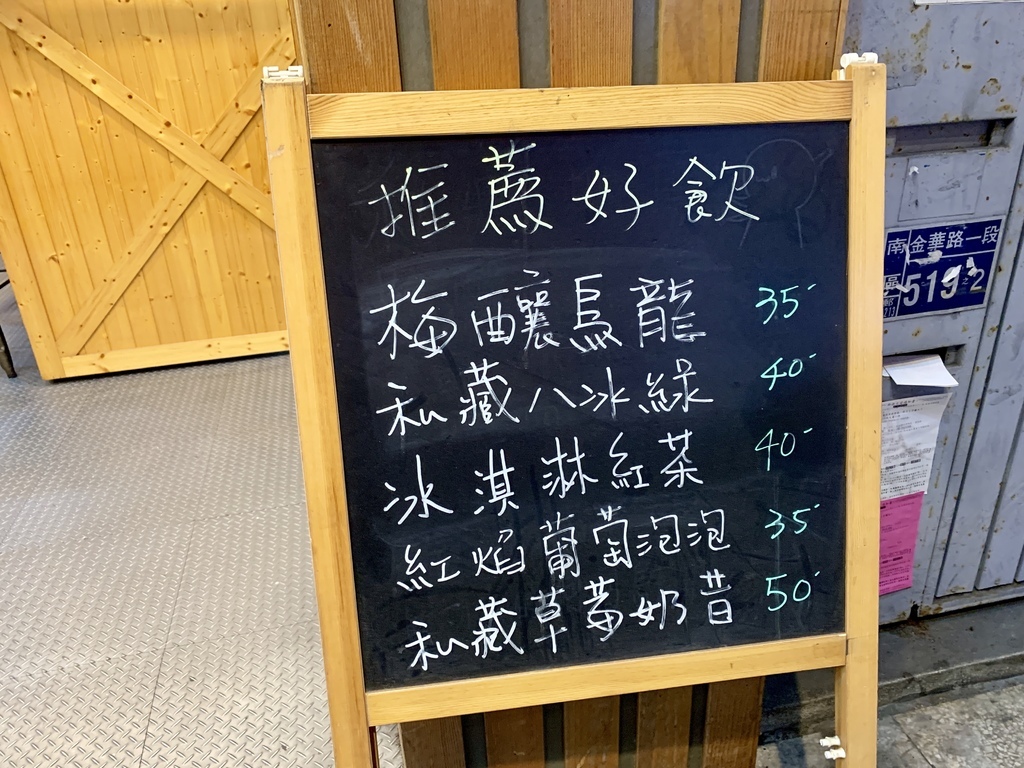 推薦好飲
梅釀烏龍 35
私藏八冰綠 40
冰淇淋紅茶 40
紅焰葡萄泡泡 35
私藏草莓奶昔 50
南金華路一段
區
519之2